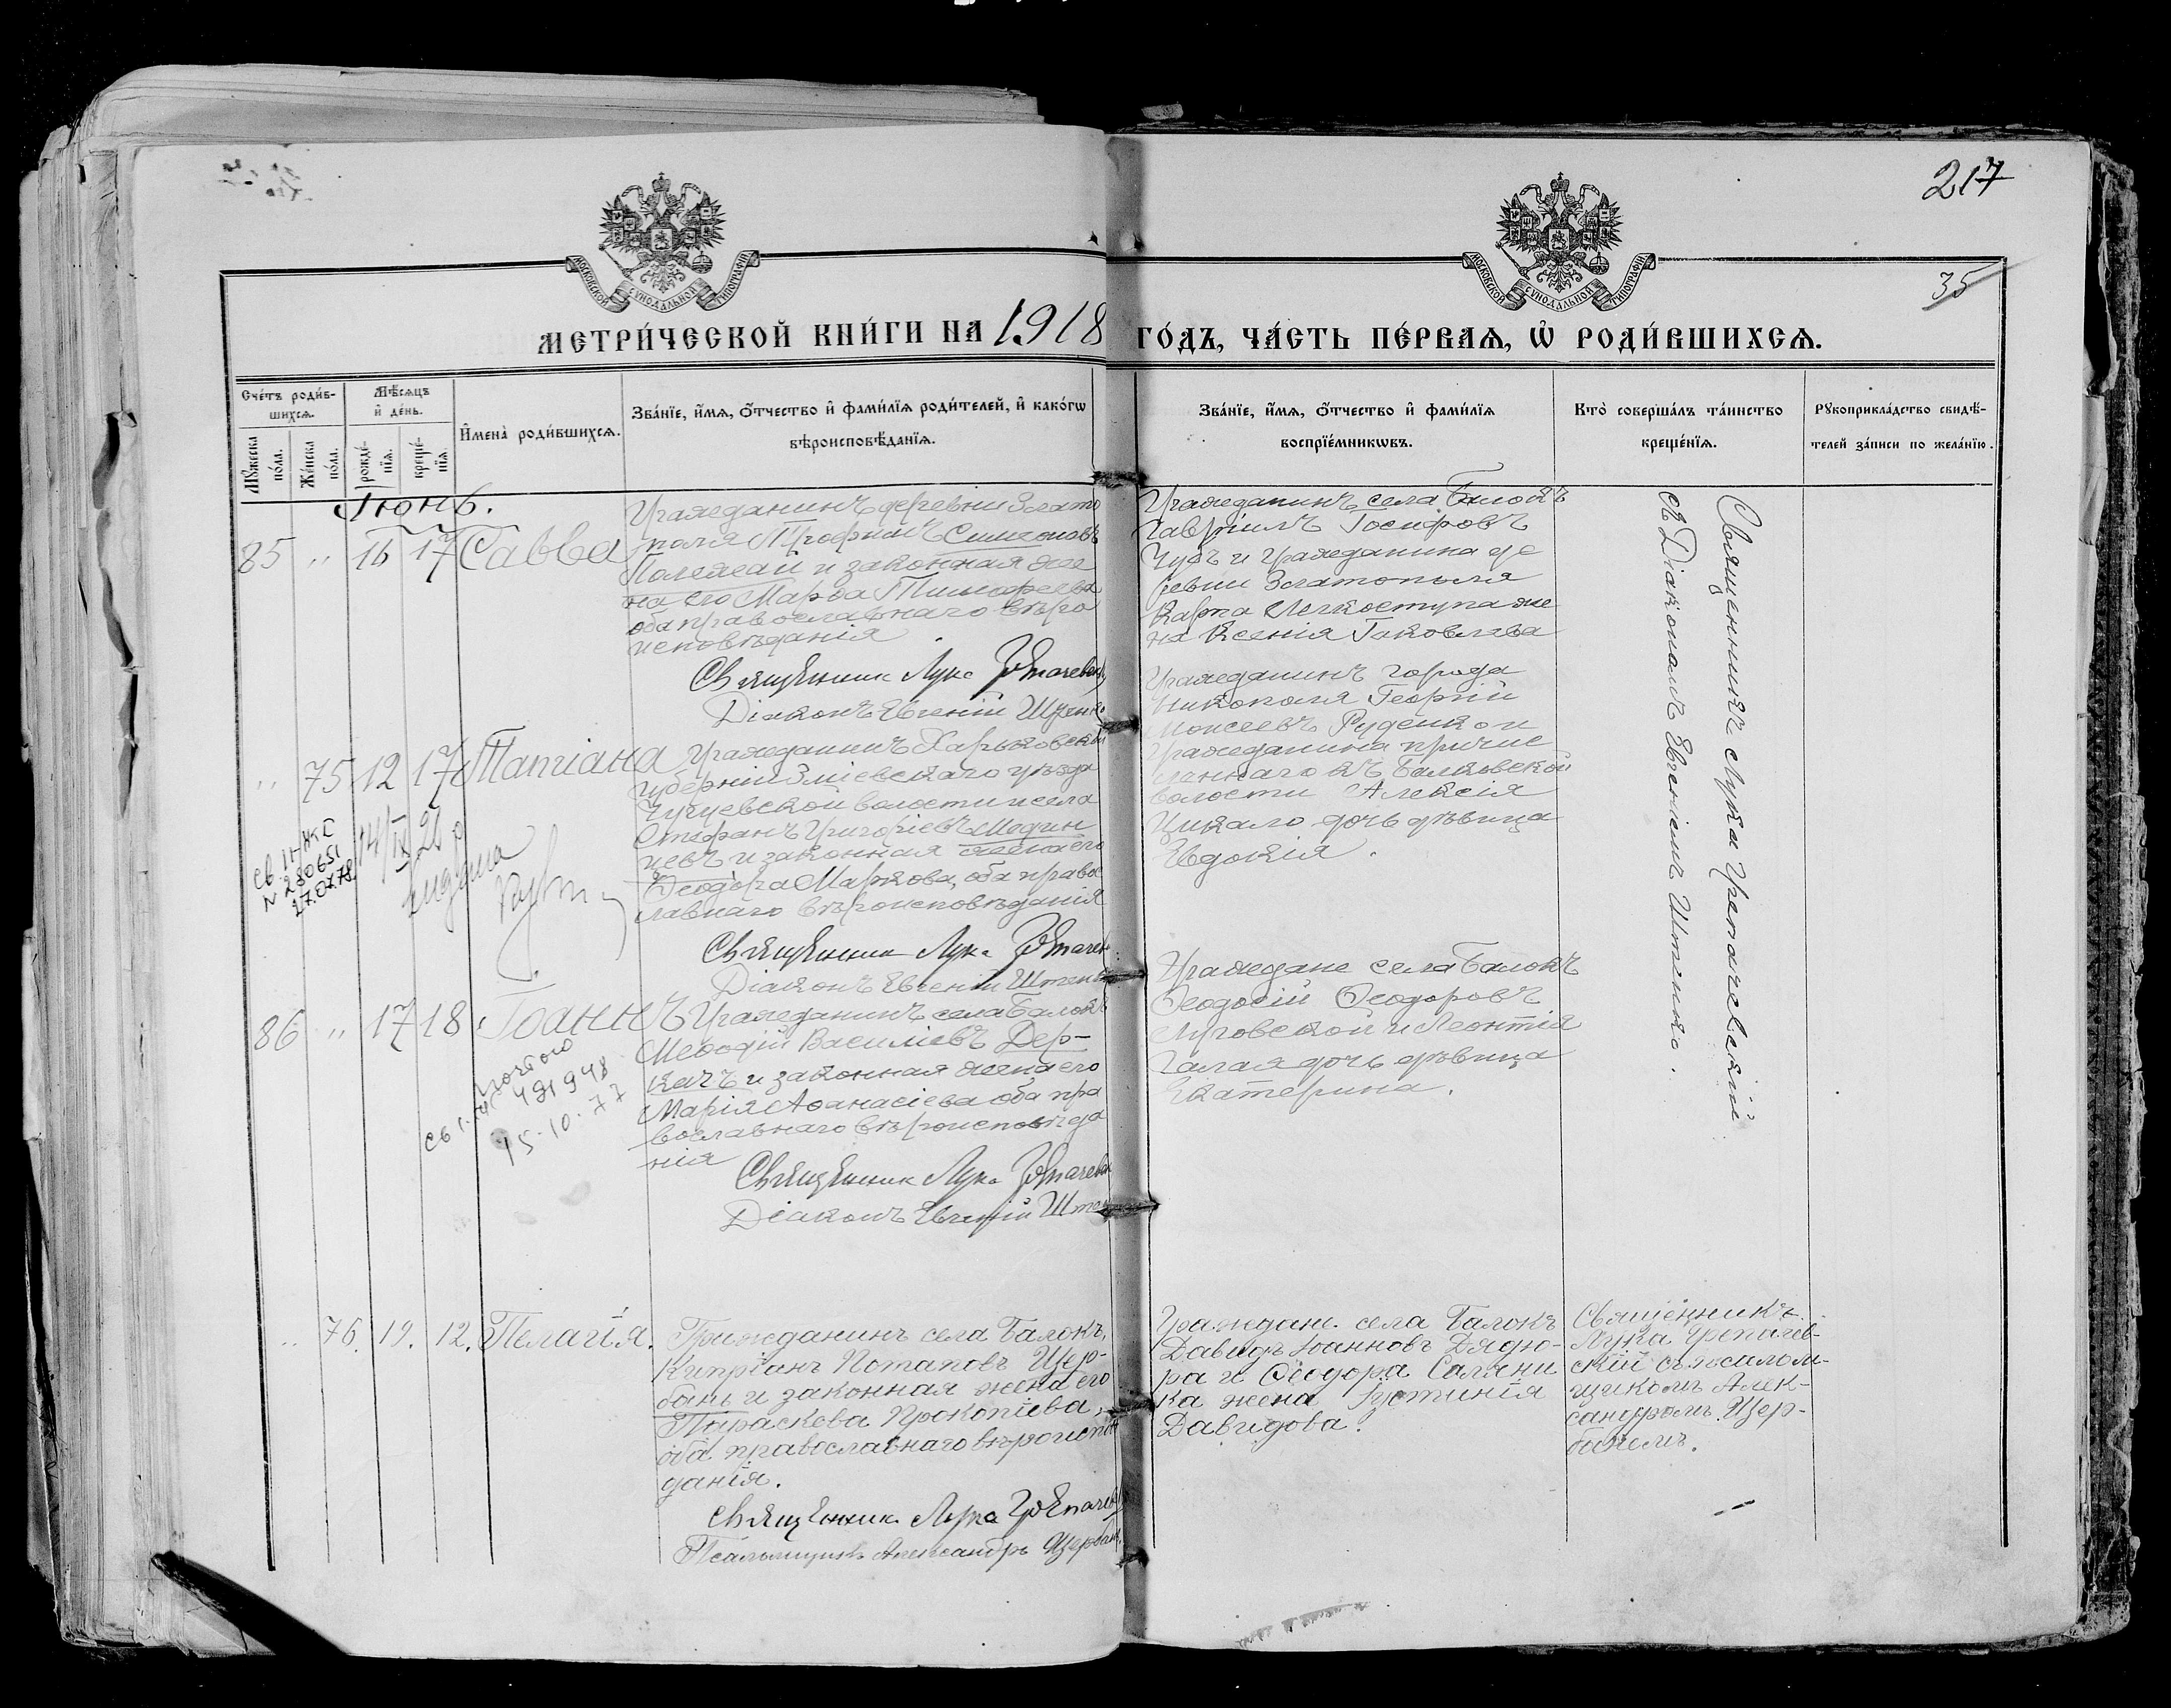 217
35
МОСКОВСКОЙ СУНОДАЛЬНОЙ ТИПОГРАФІИ
МОСКОВСКОЙ СУНОДАЛЬНОЙ ТИПОГРАФІИ
МЕТРИ́ЧЕСКОЙ КНИ́ГИ НА 1918 ГО́ДЪ, ЧА́СТЬ ПЕ́РВАѦ, Ѡ҆ РОДИ́ВШИХСѦ.
Сче́тъ роди́в-
шихсѧ.
Мꙋ́жеска по́ла.
Же́нска по́ла.
Мѣ́сѧцъ
и҆ де́нь.
рожде́-
нїѧ.
креще́-
нїѧ.
И҆мена̀ роди́вшихсѧ.
Зва́нїе, и҆́мѧ, ѻ҆́тчество и҆ фами́лїѧ роди́телей, и҆ како́гѡ
вѣроисповѣ́данїѧ.
Зва́нїе, и҆́мѧ, ѻ҆́тчество и҆ фами́лїѧ
воспрїе́мникѡвъ.
Кто̀ соверша́лъ та́инство
креще́нїѧ.
Рꙋкоприкла́дство свидѣ́-
телей за́писи по жела́нїю.
Іюнь.
85 " 16 17 Савва
Гражданинъ деревни Злато
поля Трофимъ Симеоновъ
Полежай и законная же
на его Марѳа Тимофеева
оба православнаго вѣро
исповѣданія
Священник Лука
Діаконъ Евгеній
Гражданинъ села Балокъ
Гавріилъ Іосифовъ
Чубъ и гражданина де
ревни Златополя
Карпа Легкоступа же
на Ксенія Іаковлева
Священникъ Лука Грепачевскій
съ Діакономъ Евгеніемъ Штенько.
" 75 12 17 Татіана
Гражданинъ Харьковской
губерніи Зміевскаго уѣзда
Чугуевской волости и села
Стефанъ Григоріевъ Медин
цевъ и законная жена его
Ѳеодора Маркова, оба правос
лавнаго вѣроисповѣданія
Священник Лука
Діаконъ Евгеній Штень
Гражданинъ города
Никополя Георгій
Моисеевъ Руденко и
гражданина причис
леннаго къ Балковской
волости Алексія
Цикало дочь дѣвица
Евдокія.
14/IX 26
св. II-ЖС
N 280651
27.07.78
86 " 17 18 Іоаннъ
Гражданинъ села Балокъ
Меѳодій Василіевъ Дер-
качъ и законная жена его
Марія Аѳанасіева оба пра
вославнаго вѣроисповѣда
нія
Священник Лука
Діаконъ Евгеній
Граждане села Балокъ
Ѳеодосій Ѳеодоровъ
Луговской и Леонтія
Галая дочь дѣвица
Екатерина.
491948
15.10.77
" 76. 19. 12. Пелагія.
Гражданинъ села Балокъ,
Кипріанъ Потаповъ Щер-
бань и законная жена его
Параскева Прокопіева,
оба православнаго вѣроисповѣ
данія.
Священник Лука
Псаломщикъ Александръ Щербань
Граждане села Балокъ
Давидъ Іоанновъ Дядю-
ра и Ѳеодора Соляни
ка жена Іустинія
Давидова.
Священникъ
Лука Грепачев-
скій съ псалом-
щикомъ Алек-
сандромъ Щер-
банемъ.